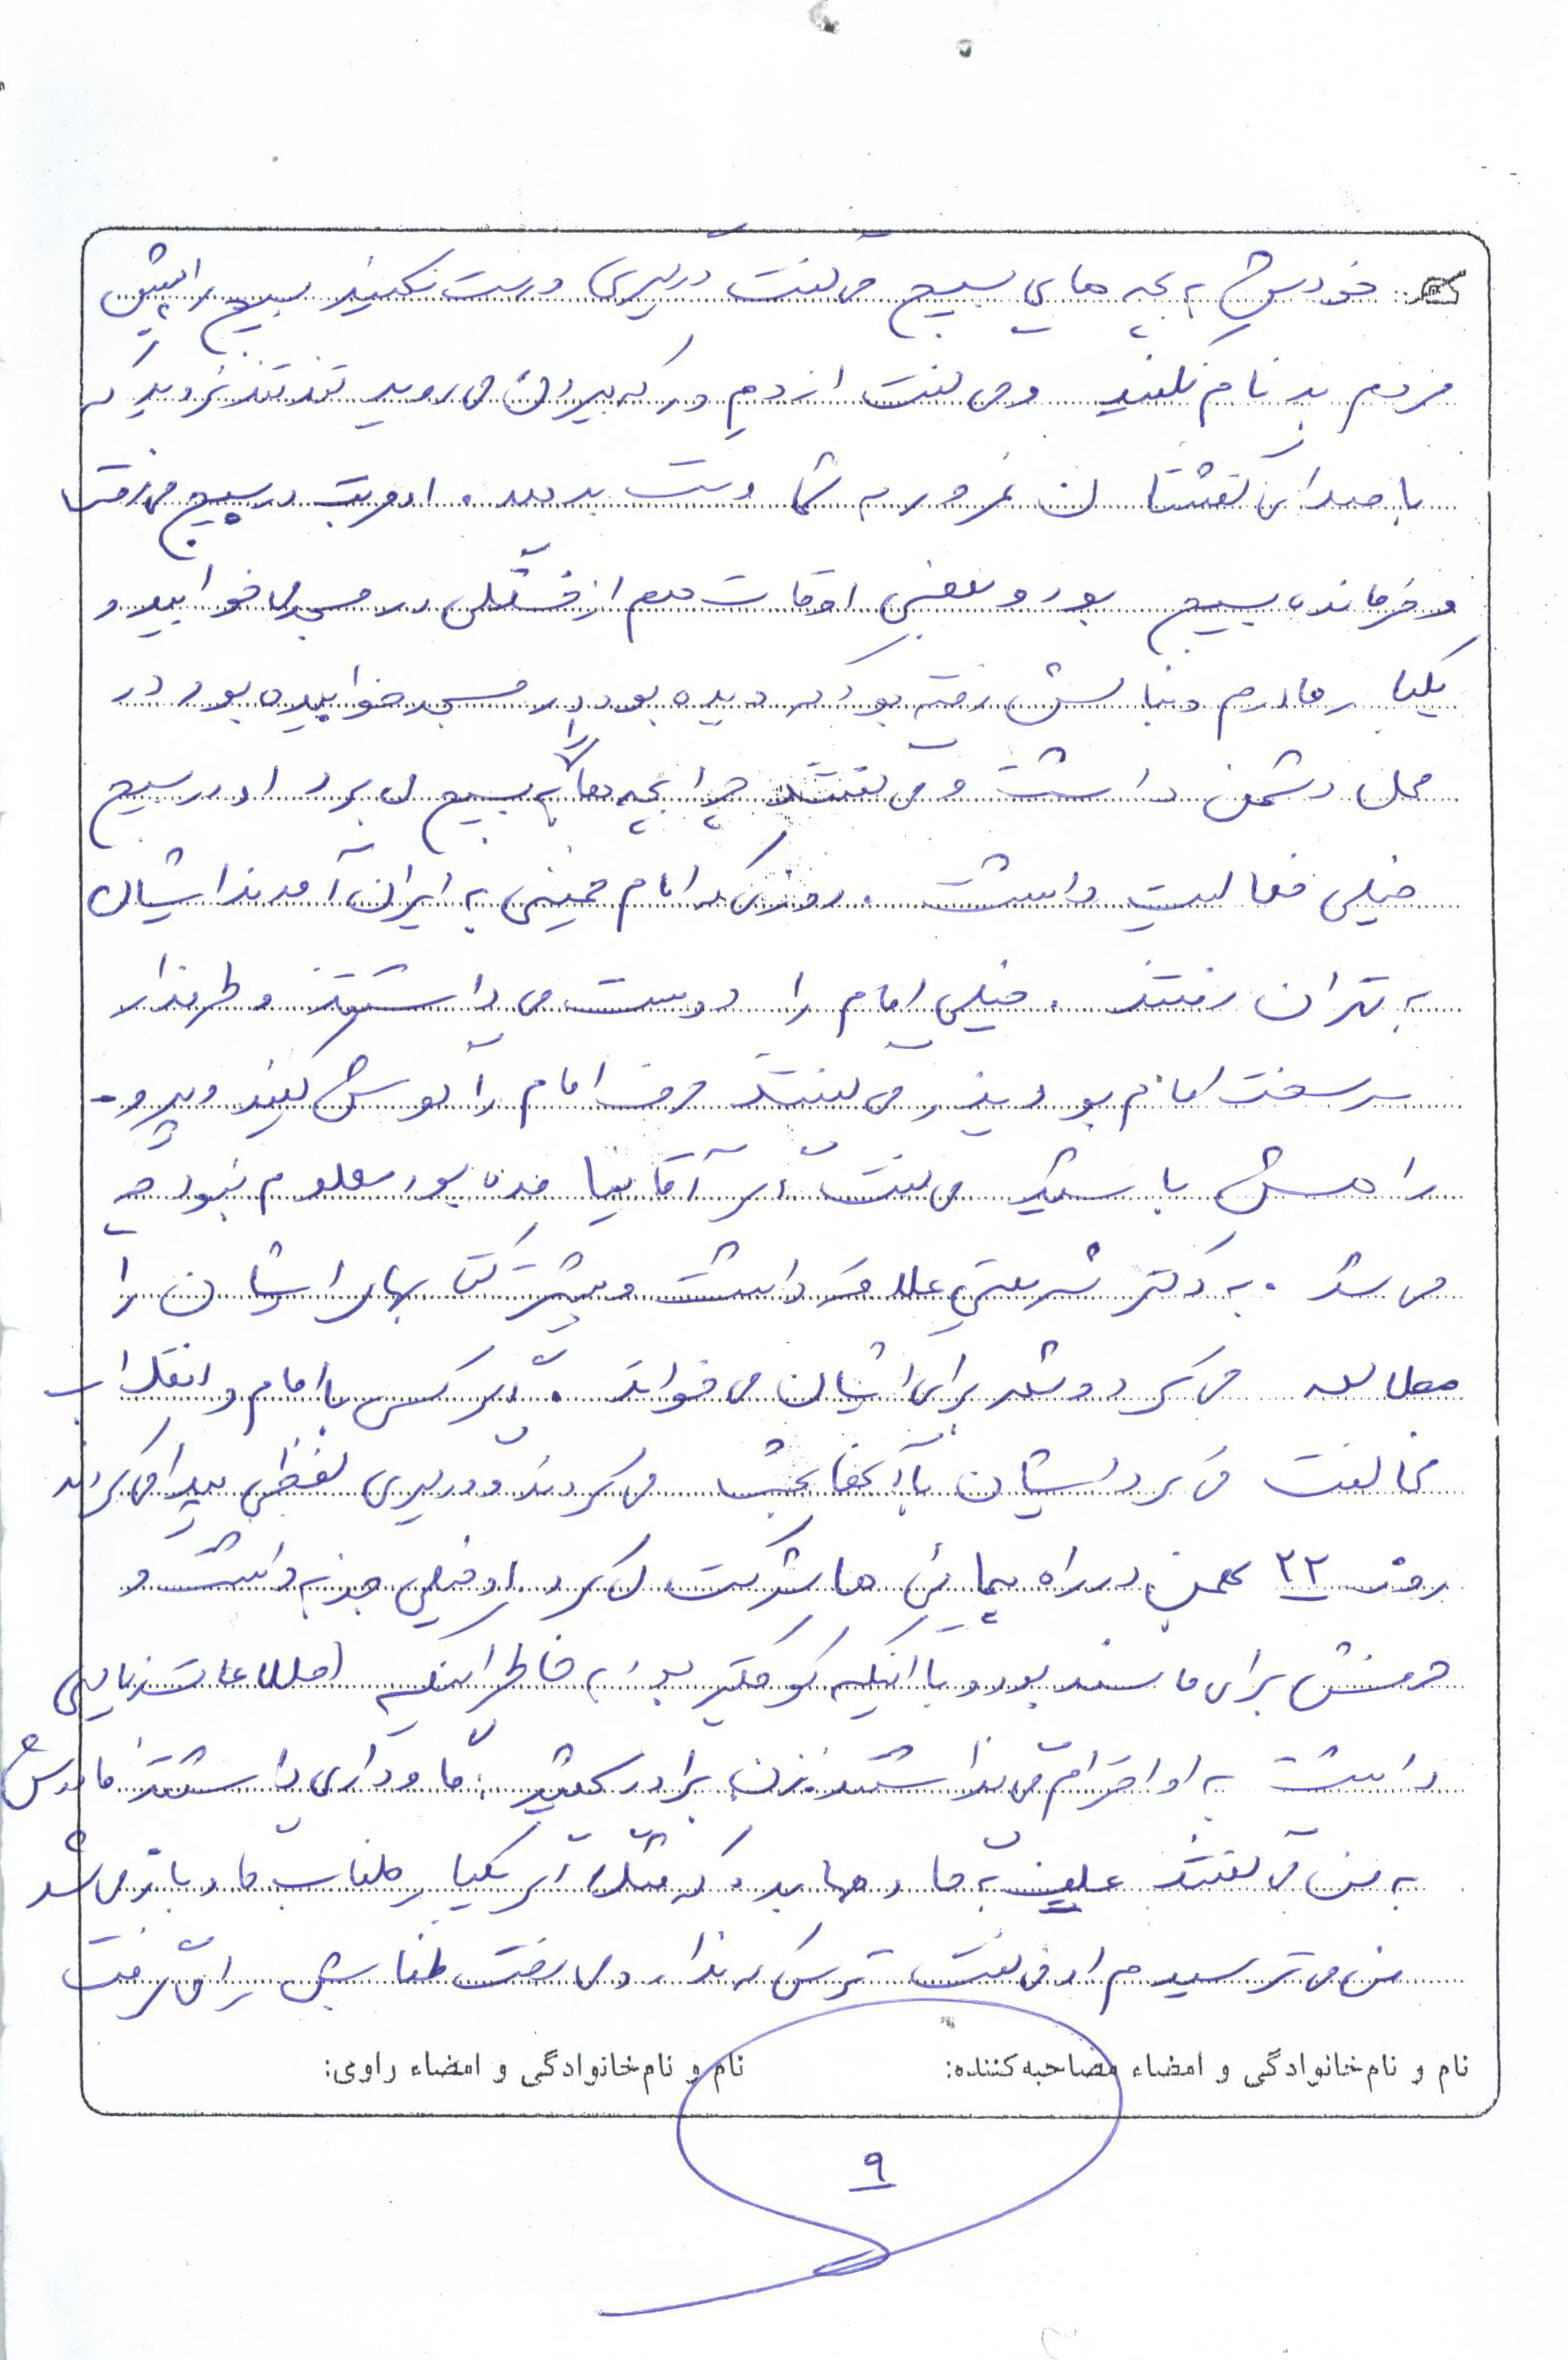 خودش به بچه های بسیج می گفت درگیری درست نکنید بسیج را پیش
مردم بد نام نکنید و می گفت از دم در که بیرون می روید تند تند نروید که
با صدای کفشتان غرور به شما دست بدهد. او مرتب در بسیج می رفت
و فرمانده بسیج بود و بعضی اوقات هم از خستگی در مسجد می خوابید و
یکبار مادرم دنبالش رفته بود که دیده بود در مسجد خوابیده بود در
محل دشمن داشت و می گفتند چرا بچه ها را به بسیج می برد او در بسیج
خیلی فعالیت داشت. روزی که امام خمینی به ایران آمدند ایشان
به تهران رفتند. خیلی امام را دوست می داشتند و طرفدار
سرسخت امام بودند می گفتند حرف امام را گوش کنید و پیرو-
راهش باشید می گفت اگر آقا نیامده بود معلوم نبود چه
می شد. به دکتر شریعتی علاقه داشت و بیشتر کتابهای ایشان را
مطالعه می کرد و شعر برای ایشان می خواند. اگر کسی با امام و انقلاب
مخالفت می کرد ایشان با آنها بحث می کردند و درگیری لفظی پیدا می کردند
روز ۲۲ بهمن در راه پیمائی ها شرکت می کرد. او خیلی جذبه داشت و
حرفش برای ما سند بود و با اینکه کوچکتر بود به خاطر اینکه اطلاعات زیادی
داشت به او احترام می گذاشتند. زن برادر گفتند: گاوداری داشتند مادرش
به من می گفتند علف به گاوها بده که مثلا اگر یکبار طناب گاو باز می شد
من می ترسیدم او می گفت ترس که ندارد می رفت طنابش را می گرفت
نام و نام خانوادگی و امضاء مصاحبه کننده:
نام و نام خانوادگی و امضاء راوی:
۹